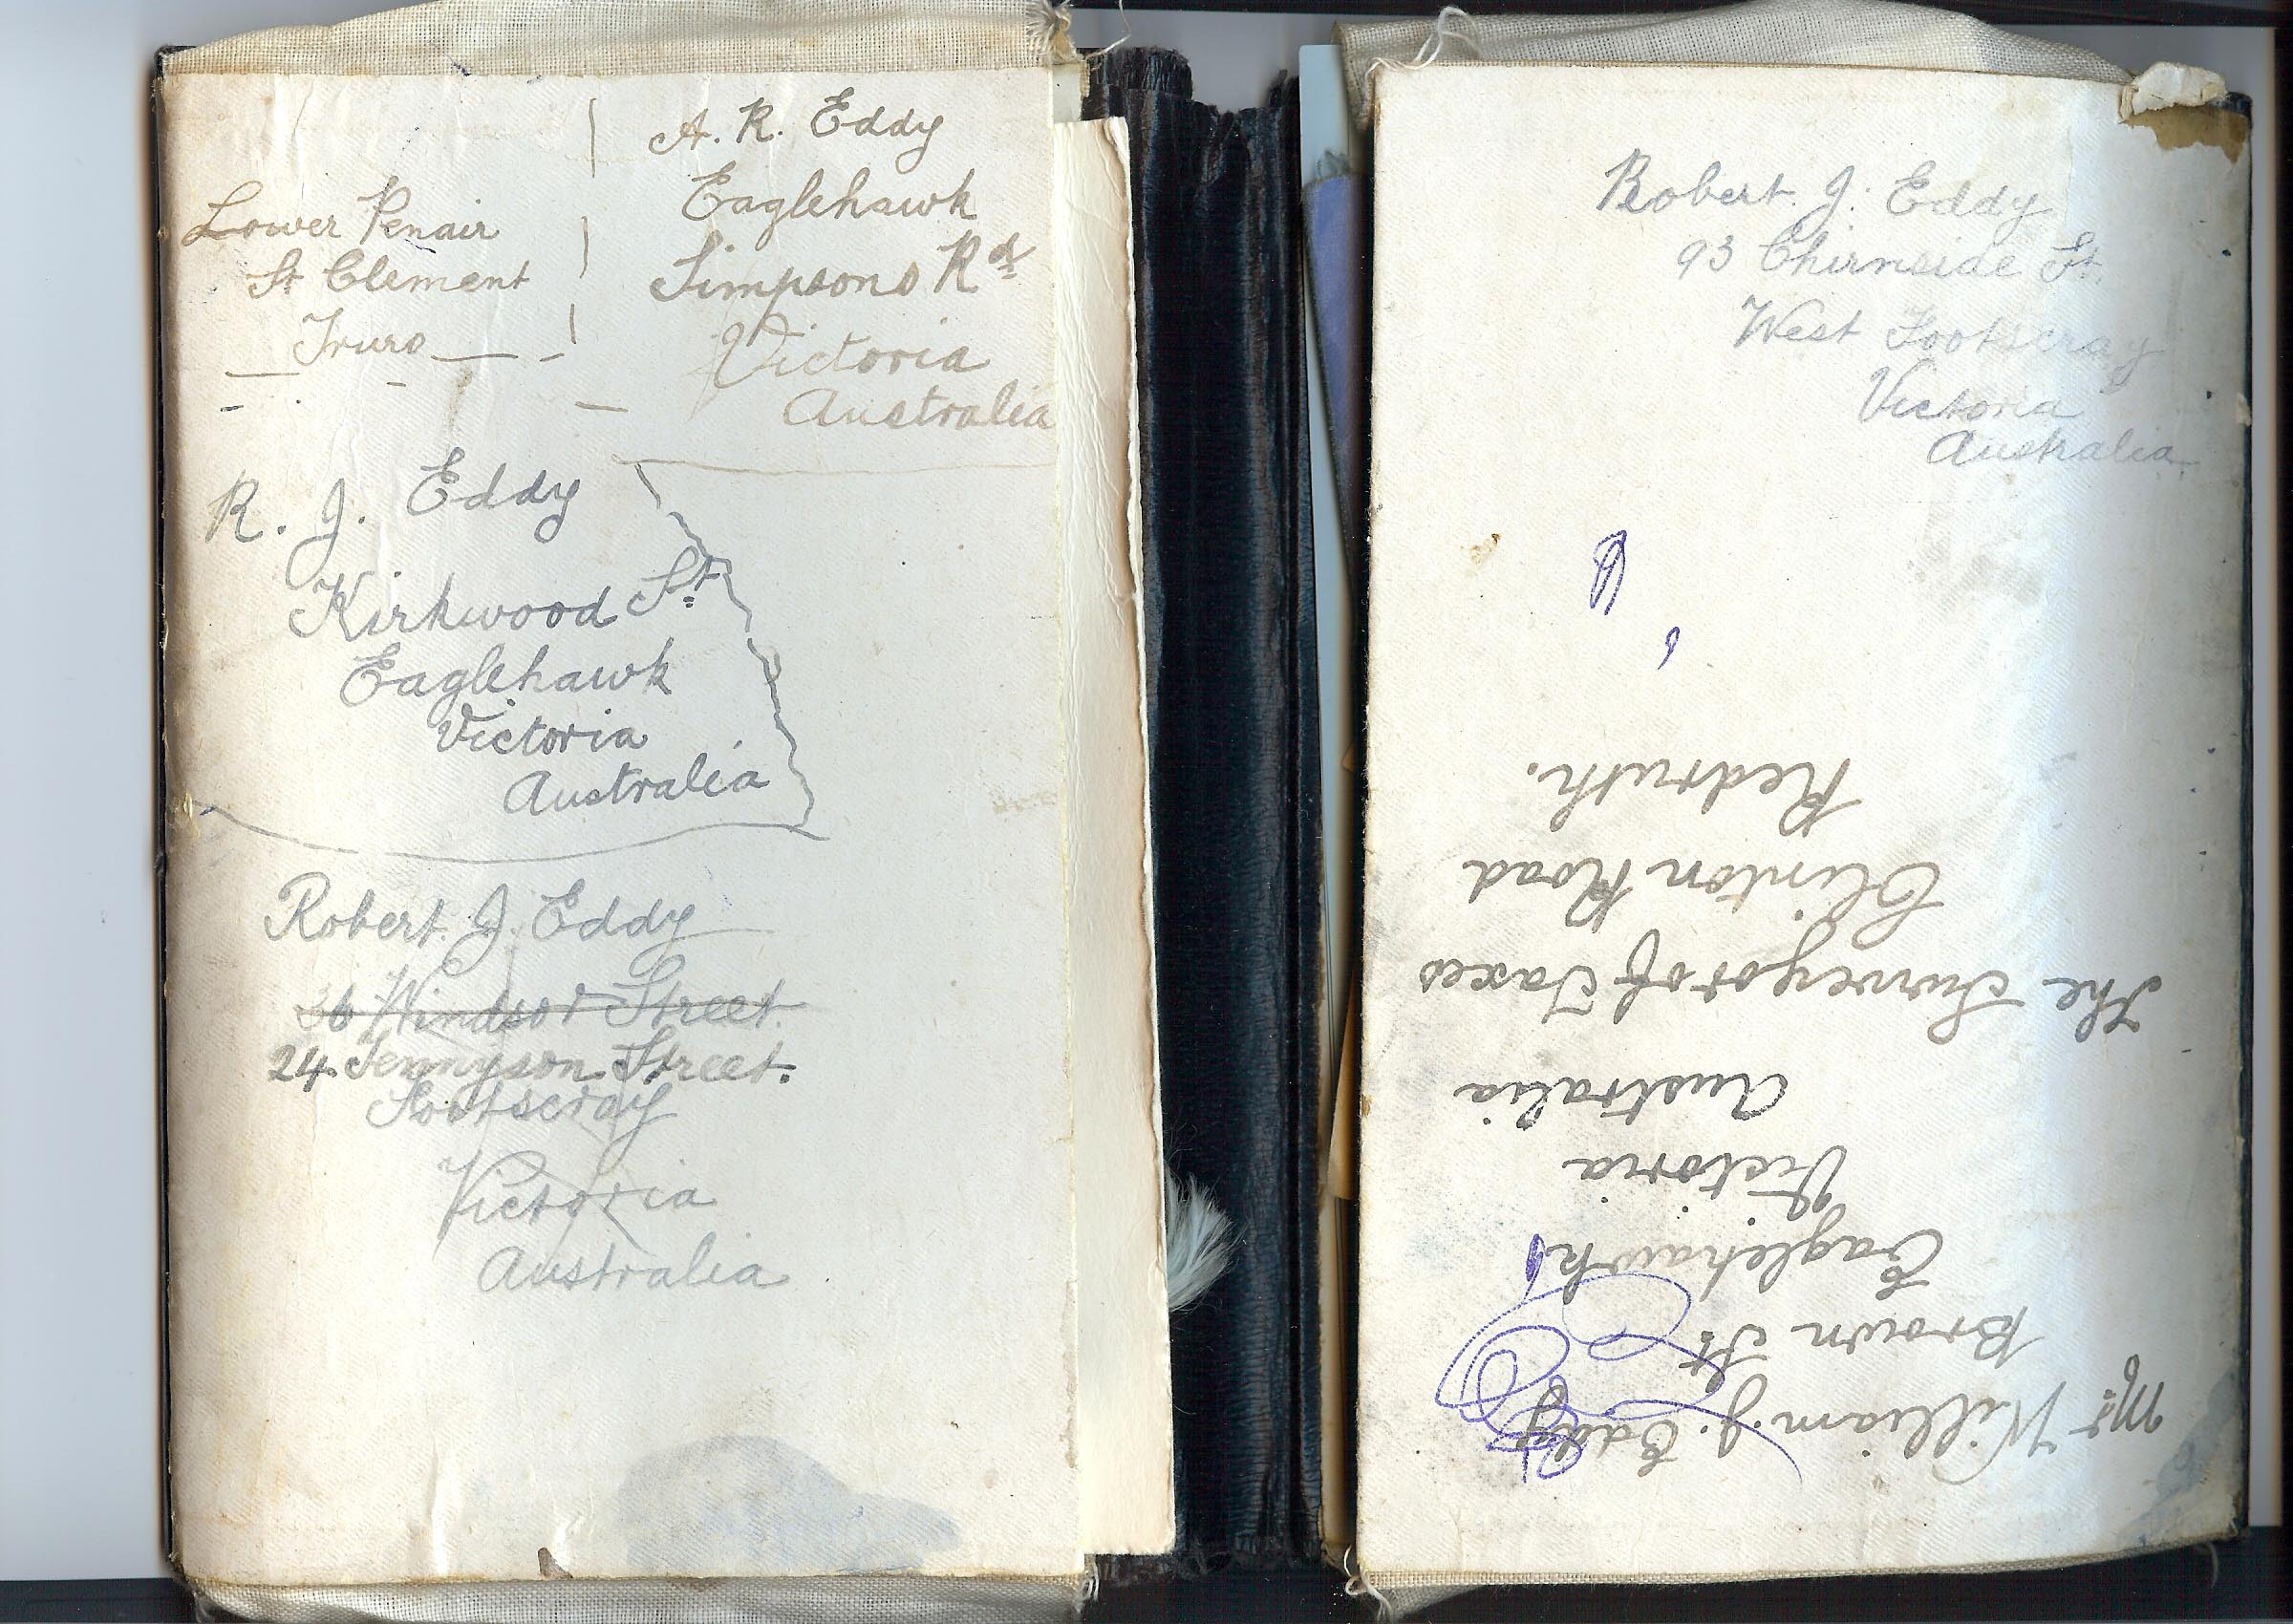 A. R. Eddy
Eaglehawk
Simpsons Rd
Victoria
Australia
Lower Penair
St Clement
Truro
R. J. Eddy
Kirkwood St
Eaglehawk
Victoria
Australia
Robert. J. Eddy
36 Windsor Street.
24 Tennyson Street.
Footscray
Victoria
Australia
Robert. J. Eddy
93 Chirnside St.
West Footscray
Victoria
Australia
Mr William. J. Eddy
Brown St
Eaglehawk
Victoria
Australia
The Surveyor of Taxes
Clinton Road
Redruth.